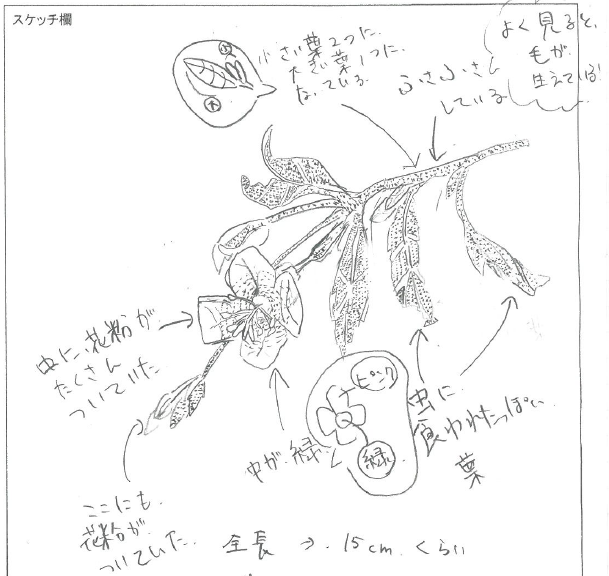 スケッチ欄
小
大
小さい葉2つに、
大きい葉1つに
なっている
ふさふさ
している
よく見ると、
毛が
生えている!
虫に、花粉が
たくさん
ついていた
ここにも
花粉が
ついていた
中が緑
ピンク
緑
虫に
食われたっぽい
葉
全長 → 15cm くらい